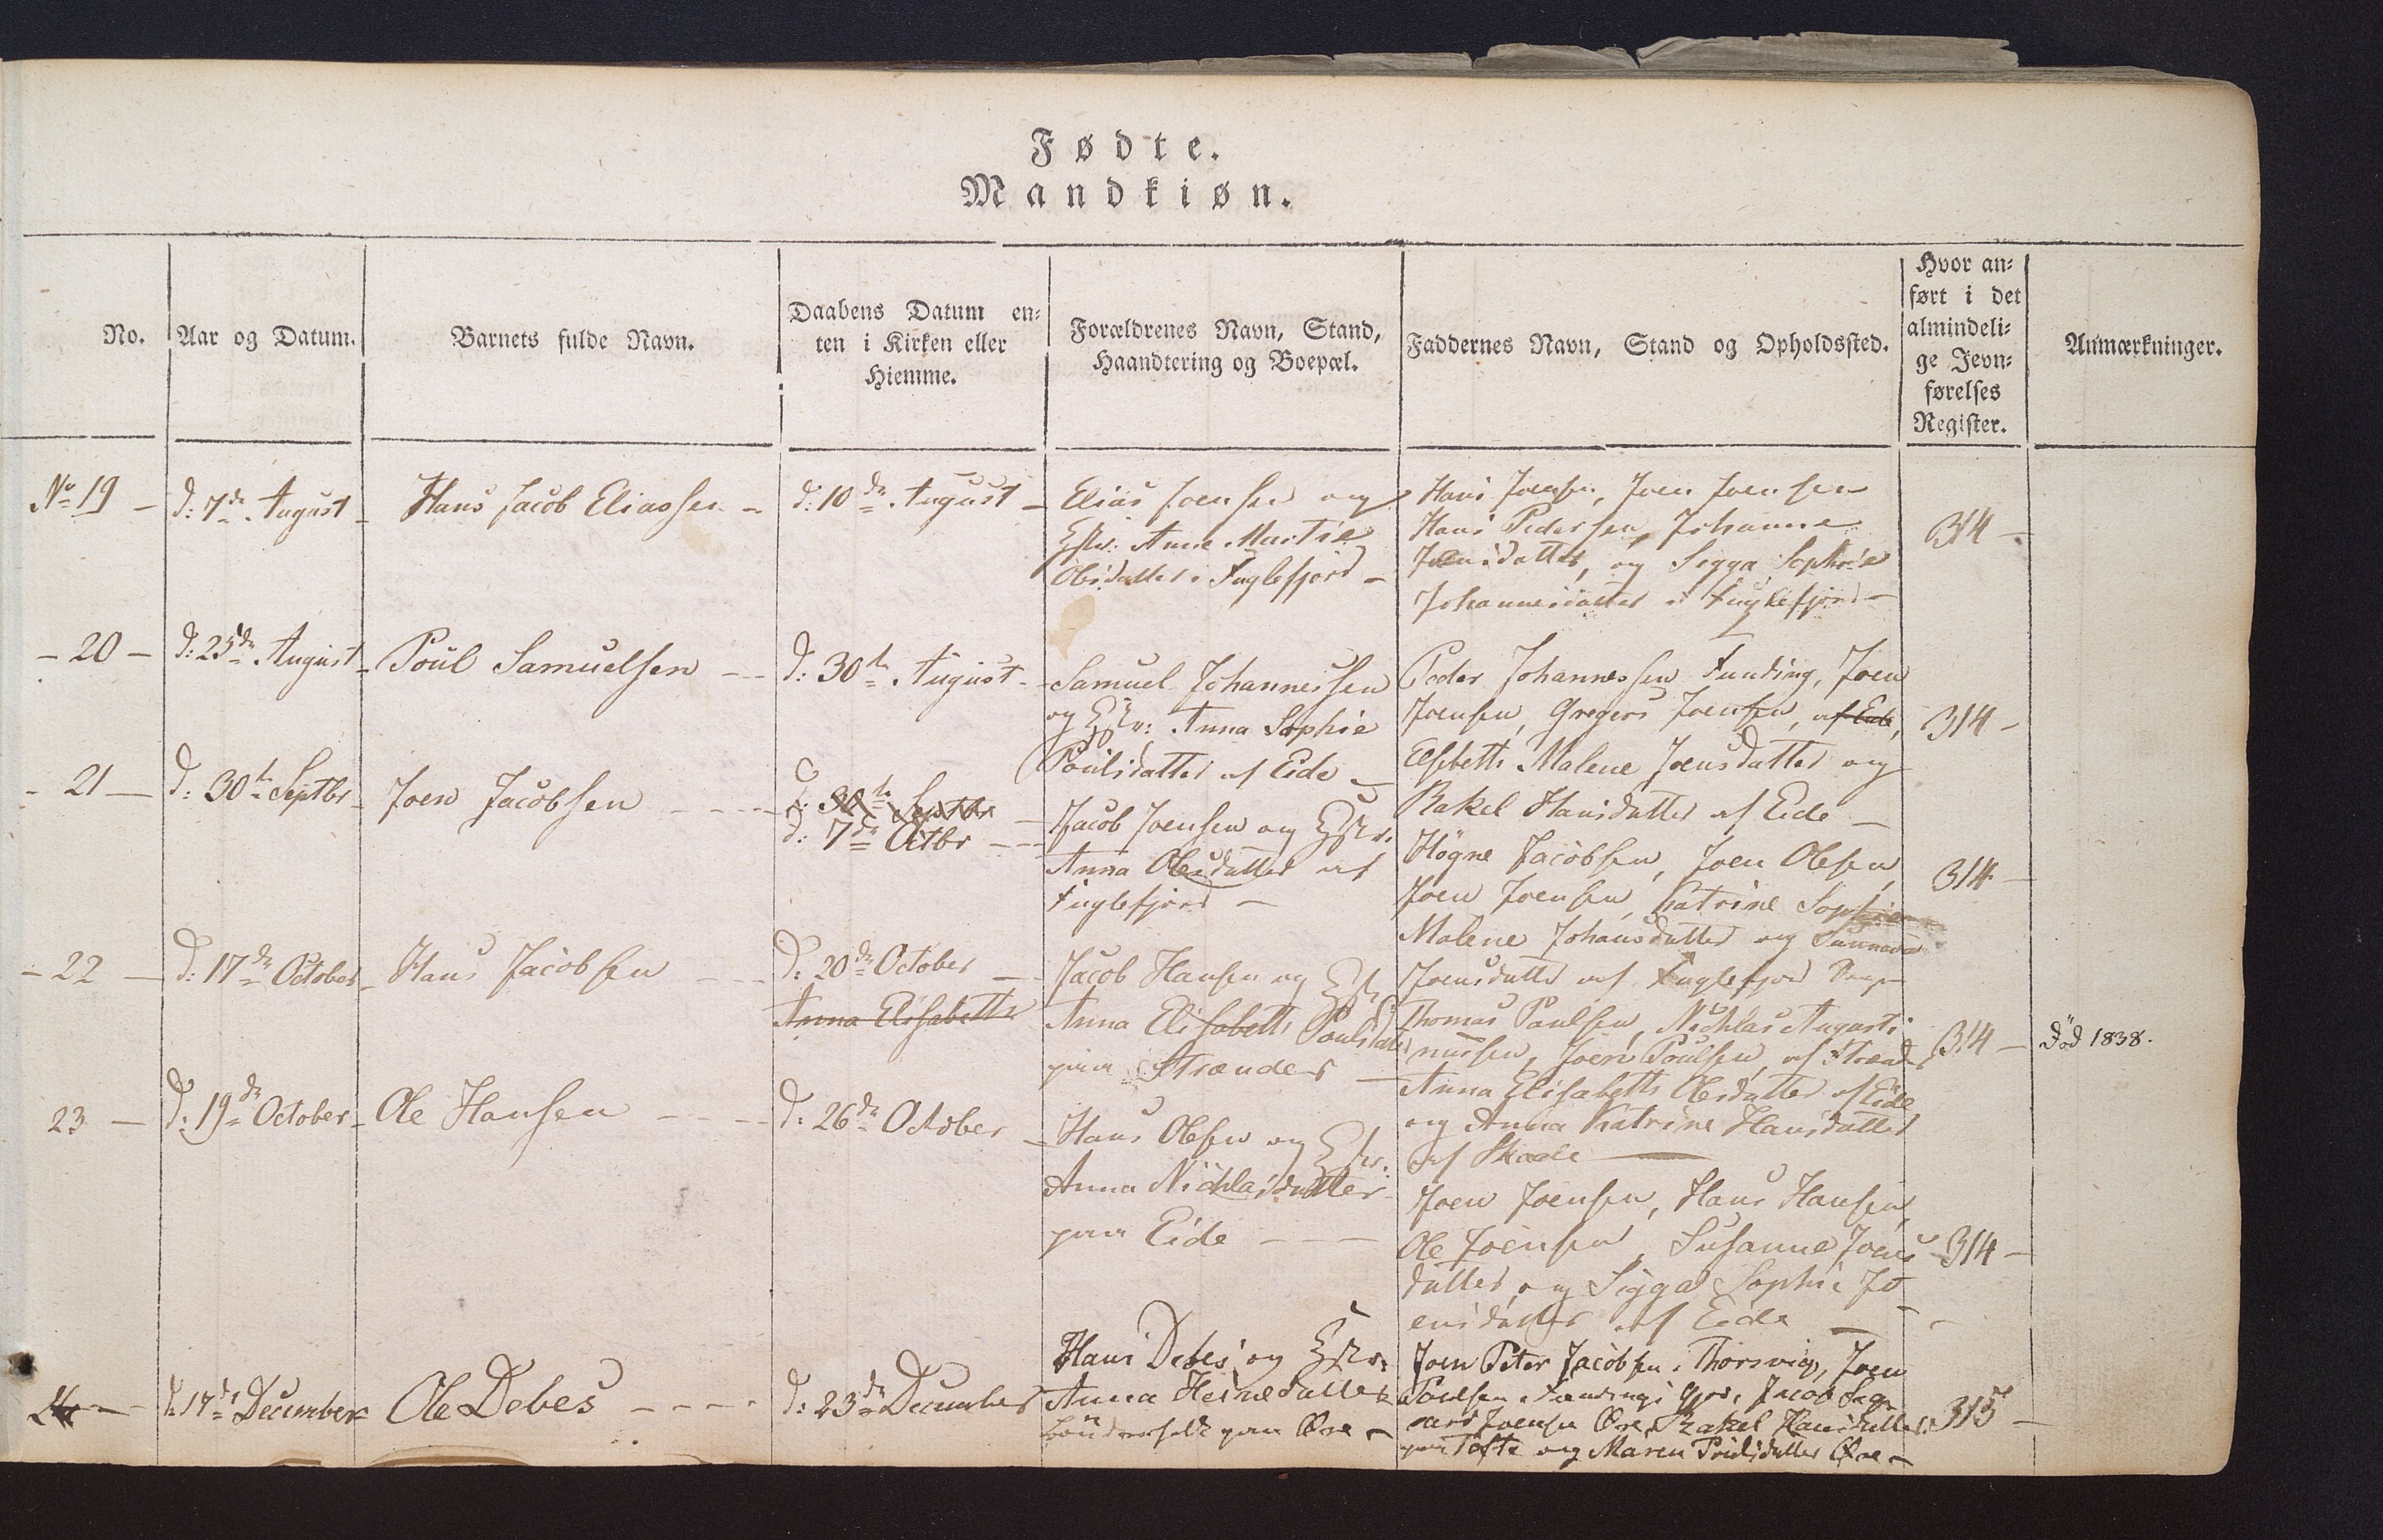 Fødte.
Mandkiøn.
No.
Aar og Datum.
Barnets fulde Navn.
Daabens Datum en-
ten i Kirken eller
Hiemme.
Forældrenes Navn, Stand,
Haandtering og Boepæl.
Faddernes Navn, Stand og Opholdssted.
Hvor an-
ført i det
almindeli-
ge Jevn-
førelses
Register.
Anmærkninger.
No 19 -
d: 7de August -
Hans Jacob Eliassen -
d: 10de August -
Elias Joensen og
Hstr: Anne Martie
Olesdatter i Fuglefjord -
Hans Joensen, Joen Joensen
Hans Pedersen, Johanne
Joensdatter, og Sigga Sophie
Johannesdatter i Fuglefjord -
314 -
- 20 -
d: 25de August -
Poul Samuelsen --
d: 30te August -
Samuel Johannessen
og Hstr: Anna Sophie
Poulsdatter af Eide -
Peder Johannessen Funding, Joen
Joensen, Gregers Joensen, af Eide,
Elsbeth Malene Joensdatter og
Rakel Hansdatter af Eide -
314 -
- 21 -
d: 30te Septbr -
Joen Jacobsen ----
d: 30te Septbr -
d: 7de Octbr --
Jacob Joensen og Hstr.
Anna Olesdatter af
Fuglefjord -
Högne Jacobsen, Joen Olesen,
Joen Joensen, Katrine Sophie
Malene Johansdatter og Sunneva
Joensdatter af Fuglefjord
314 -
- 22 -
d: 17de October -
Hans Jacobsen --
d: 20de October -
Anna Elisabeth
Jacob Hansen og Hstr
Anna Elisabeth Poulsdatter
paa Strænder -
Thomas Poulsen, Nichlas Augusti
nussen, Joen Poulsen, af Strænder
Anna Elisabeth Olesdatter af Eide
og Anna Katrine Hansdatter
af Skaale -
314 -
död 1838.
23 -
d: 19de October -
Ole Hansen ---
d: 26de October -
Hans Olesen og Hstr.
Anna Nichlasdatter
paa Eide --
Joen Joensen, Hans Hansen,
Ole Joensen, Susanne Joens
datter og Sigga Sophie Jo
ensdatter af Eide -
314 -
24 -
d: 17de December
Ole Debes ----
d: 23de December
Hans Debes og Hstr.
Anna Heinedatter
Bönderfolk paa Øre -
Joen Peter Jacobsen i Thorsvig, Joen
Poulsen i Fundings Gjov, Jacob Sig
vard Joensen Øre, Rakel Hansdatter
paa Tofte og Maren Poulsdatter Øre -
315 -